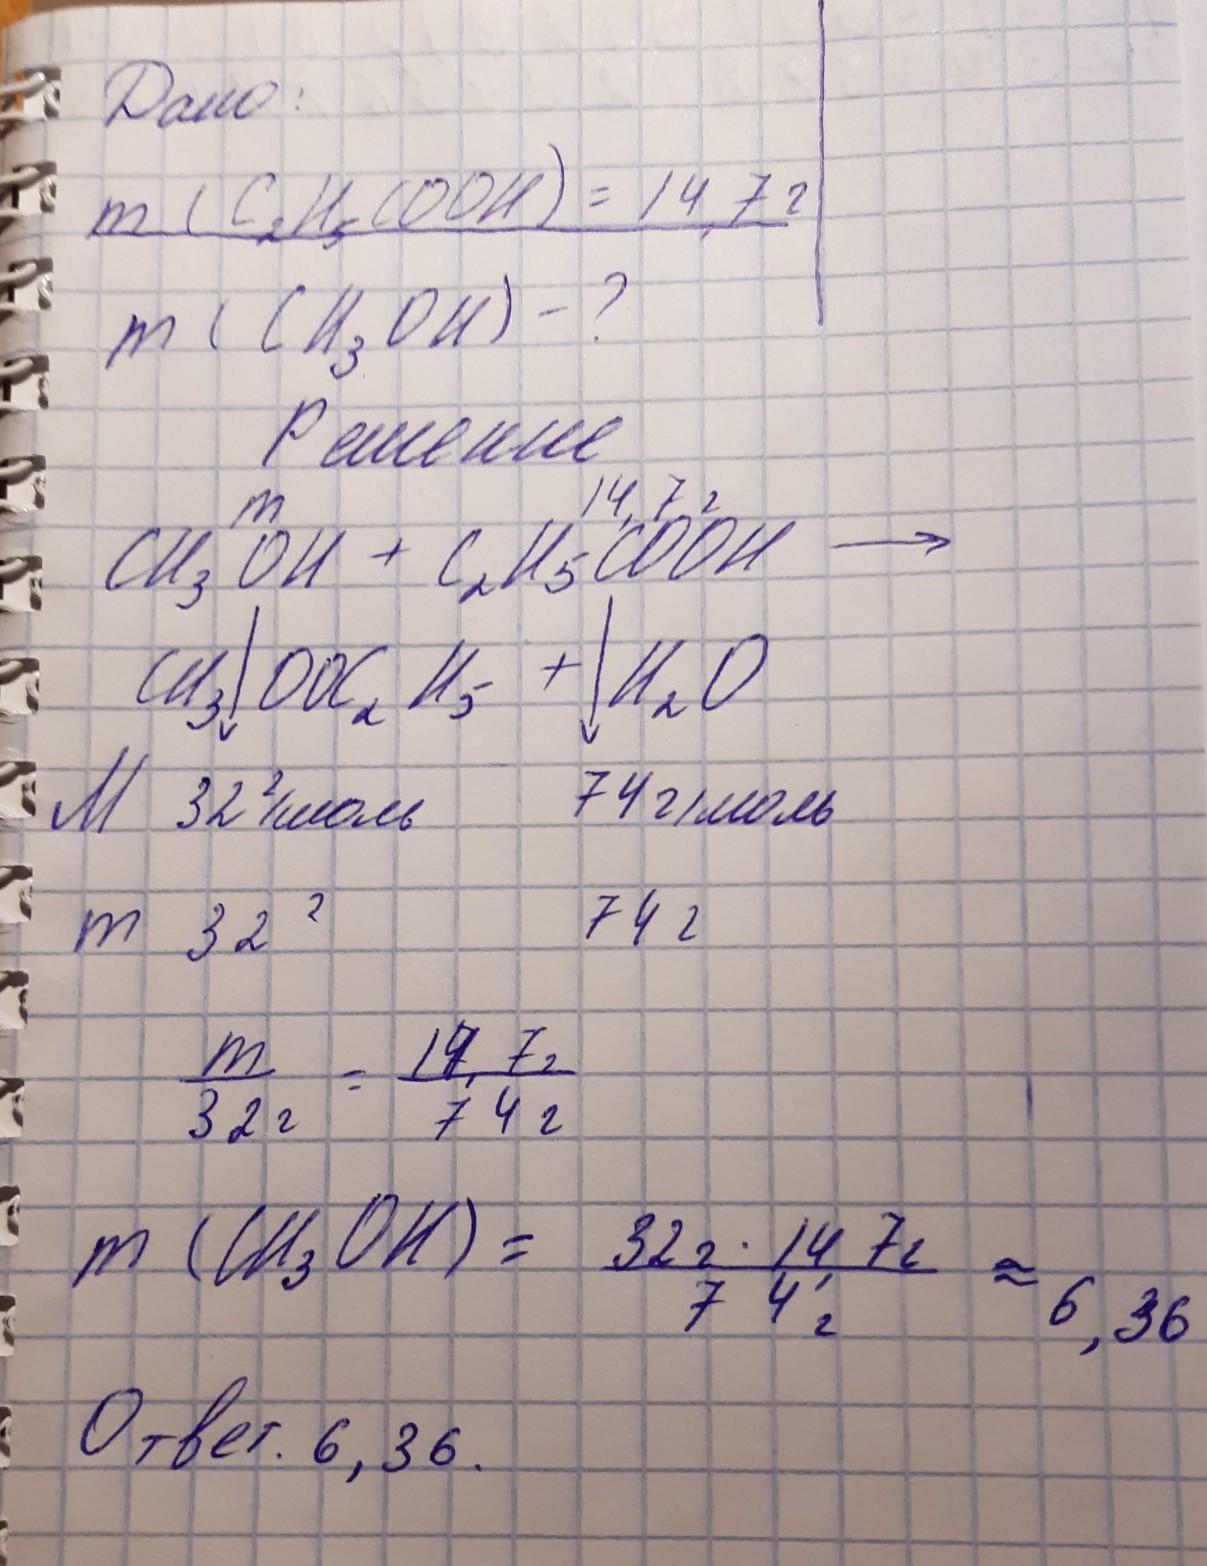 Дано:
m (C₂H₅COOH) = 14,7 г
m (CH₃OH) - ?
Решение
m 14,7 г
CH₃OH + C₂H₅COOH →
CH₃OOC₂H₅ + H₂O
M 32 г/моль 74 г/моль
m 32 г 74 г
m/32 г = 14,7 г/74 г
m (CH₃OH) = 32 г · 14,7 г/74 г ≈ 6,36
Ответ. 6,36.